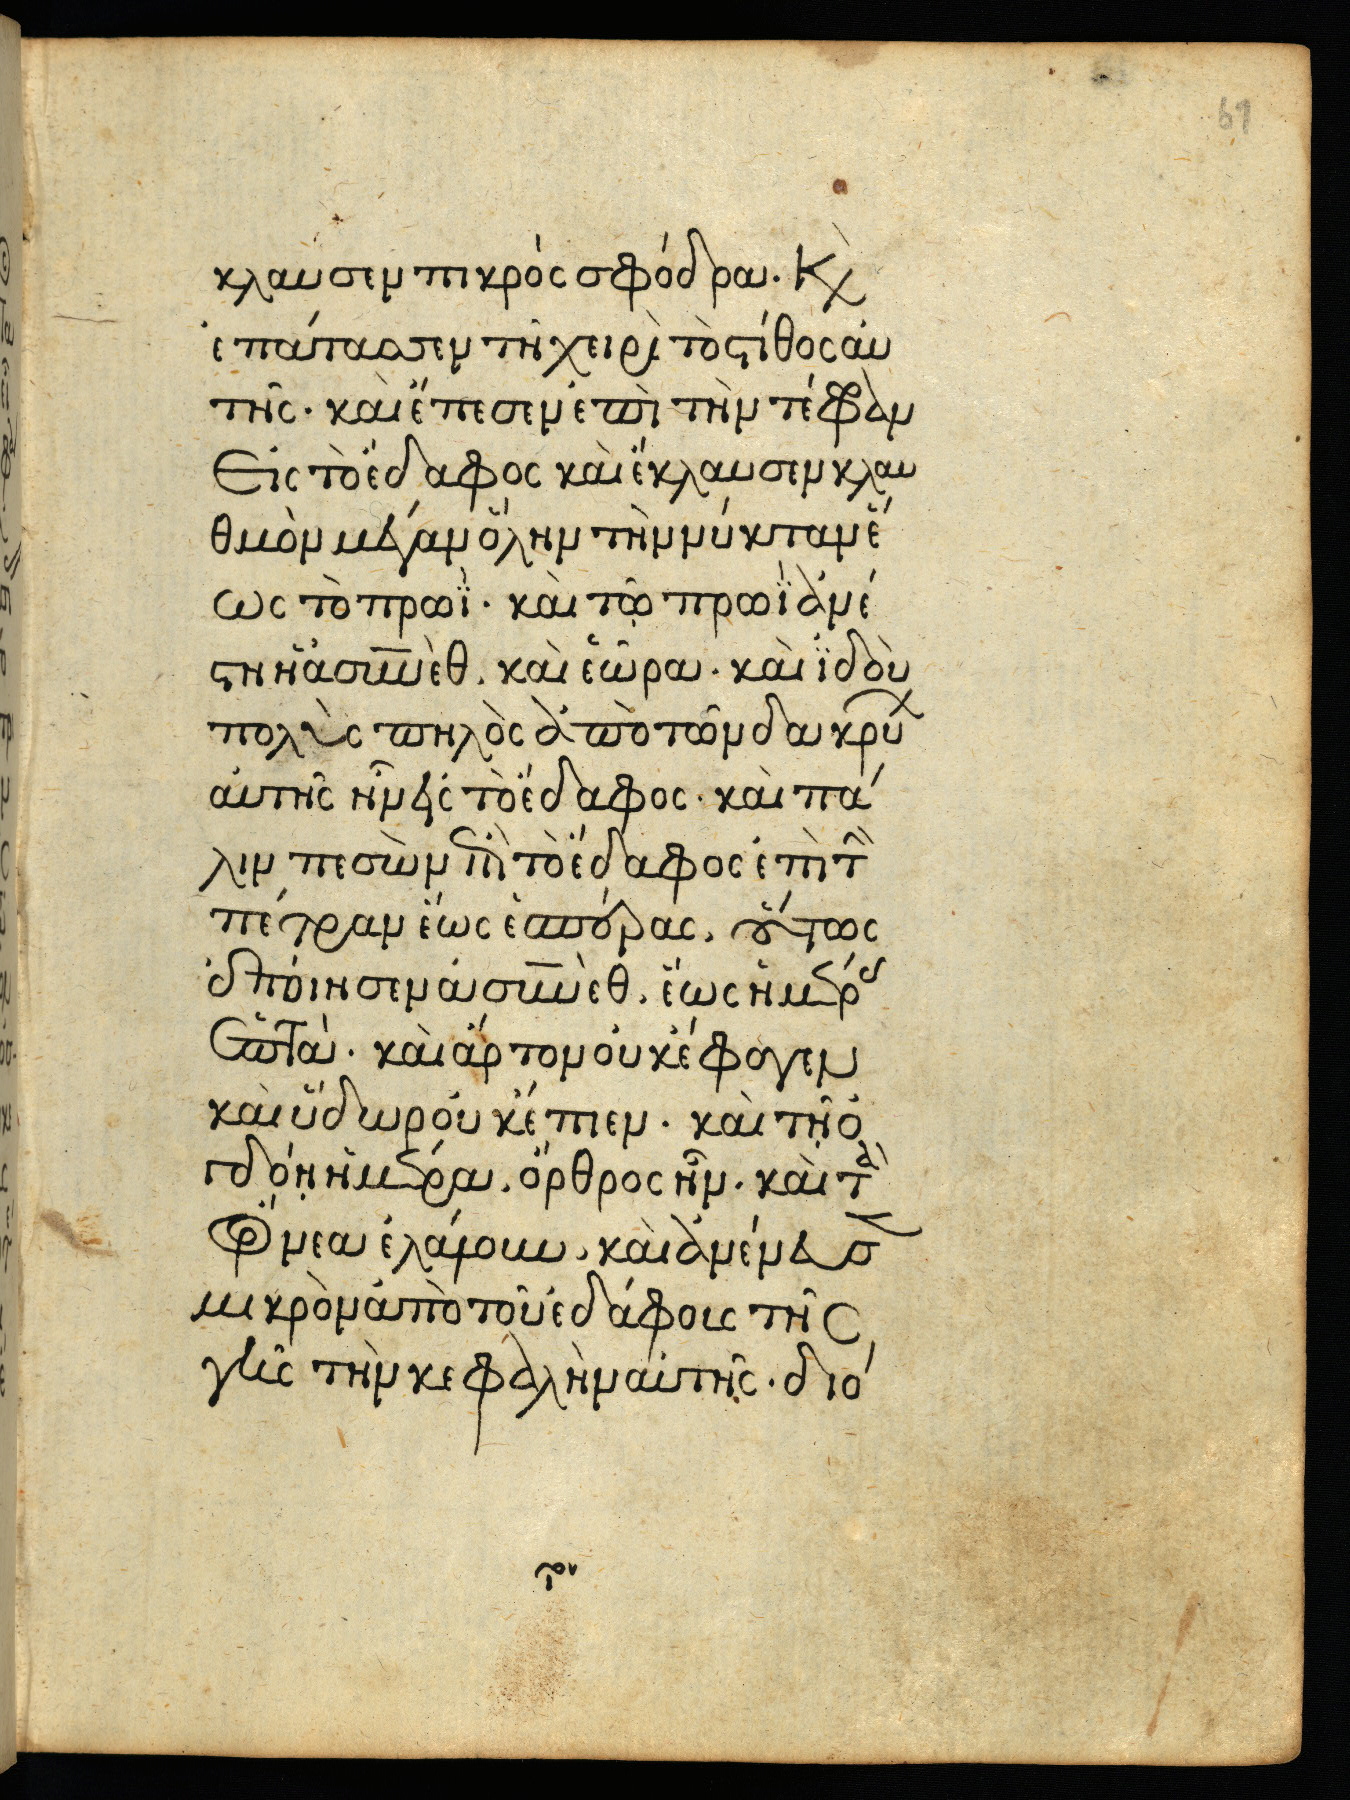 61
κλαυσεν πικρός σφόδρα. Κὶ
ἐπάταασεν τῇ χειρὶ τὸ στίθος αὐ
τῆς. καὶ ἔπεσεν ἐπὶ τὴν τέφραν
Εἰς τὸ ἔδαφος καὶ ἔκλαυσεν κλαυ
θμὸν μέγαν ὅλην τὴν νύκταν ἕ
ως τὸ πρωΐ. καὶ τῷ πρωῒ ἀνέ
στη ἡ ἀσυνὲθ. καὶ ἑώρα. καὶ ἰδοὺ
πολὺς πηλὸς ἀπὸ τῶν δακρύ
αὐτῆς ἦν εἰς τὸ ἔδαφος. καὶ πά
λιν πεσὼν ἐπὶ τὸ ἔδαφος ἐπὶ τὴ
πέτραν ἕως ἑσπέρας. οὕτως
ἐποίησεν ἀσυνὲθ. ἕως ἡμέρας
ἑπτὰ. καὶ ἄρτον οὐκ ἔφαγεν
καὶ ὕδωρ οὐκ ἔπιεν. καὶ τῇ ὀ
γδόῃ ἡμέρα. ὄρθρος ἦν. καὶ τὰ
ὄρνεα ἐλάλουν. καὶ ἀνένευσ
μικρὸν ἀπὸ τοῦ ἐδάφους τῆς
γῆς τὴν κεφαλὴν αὐτῆς. διό